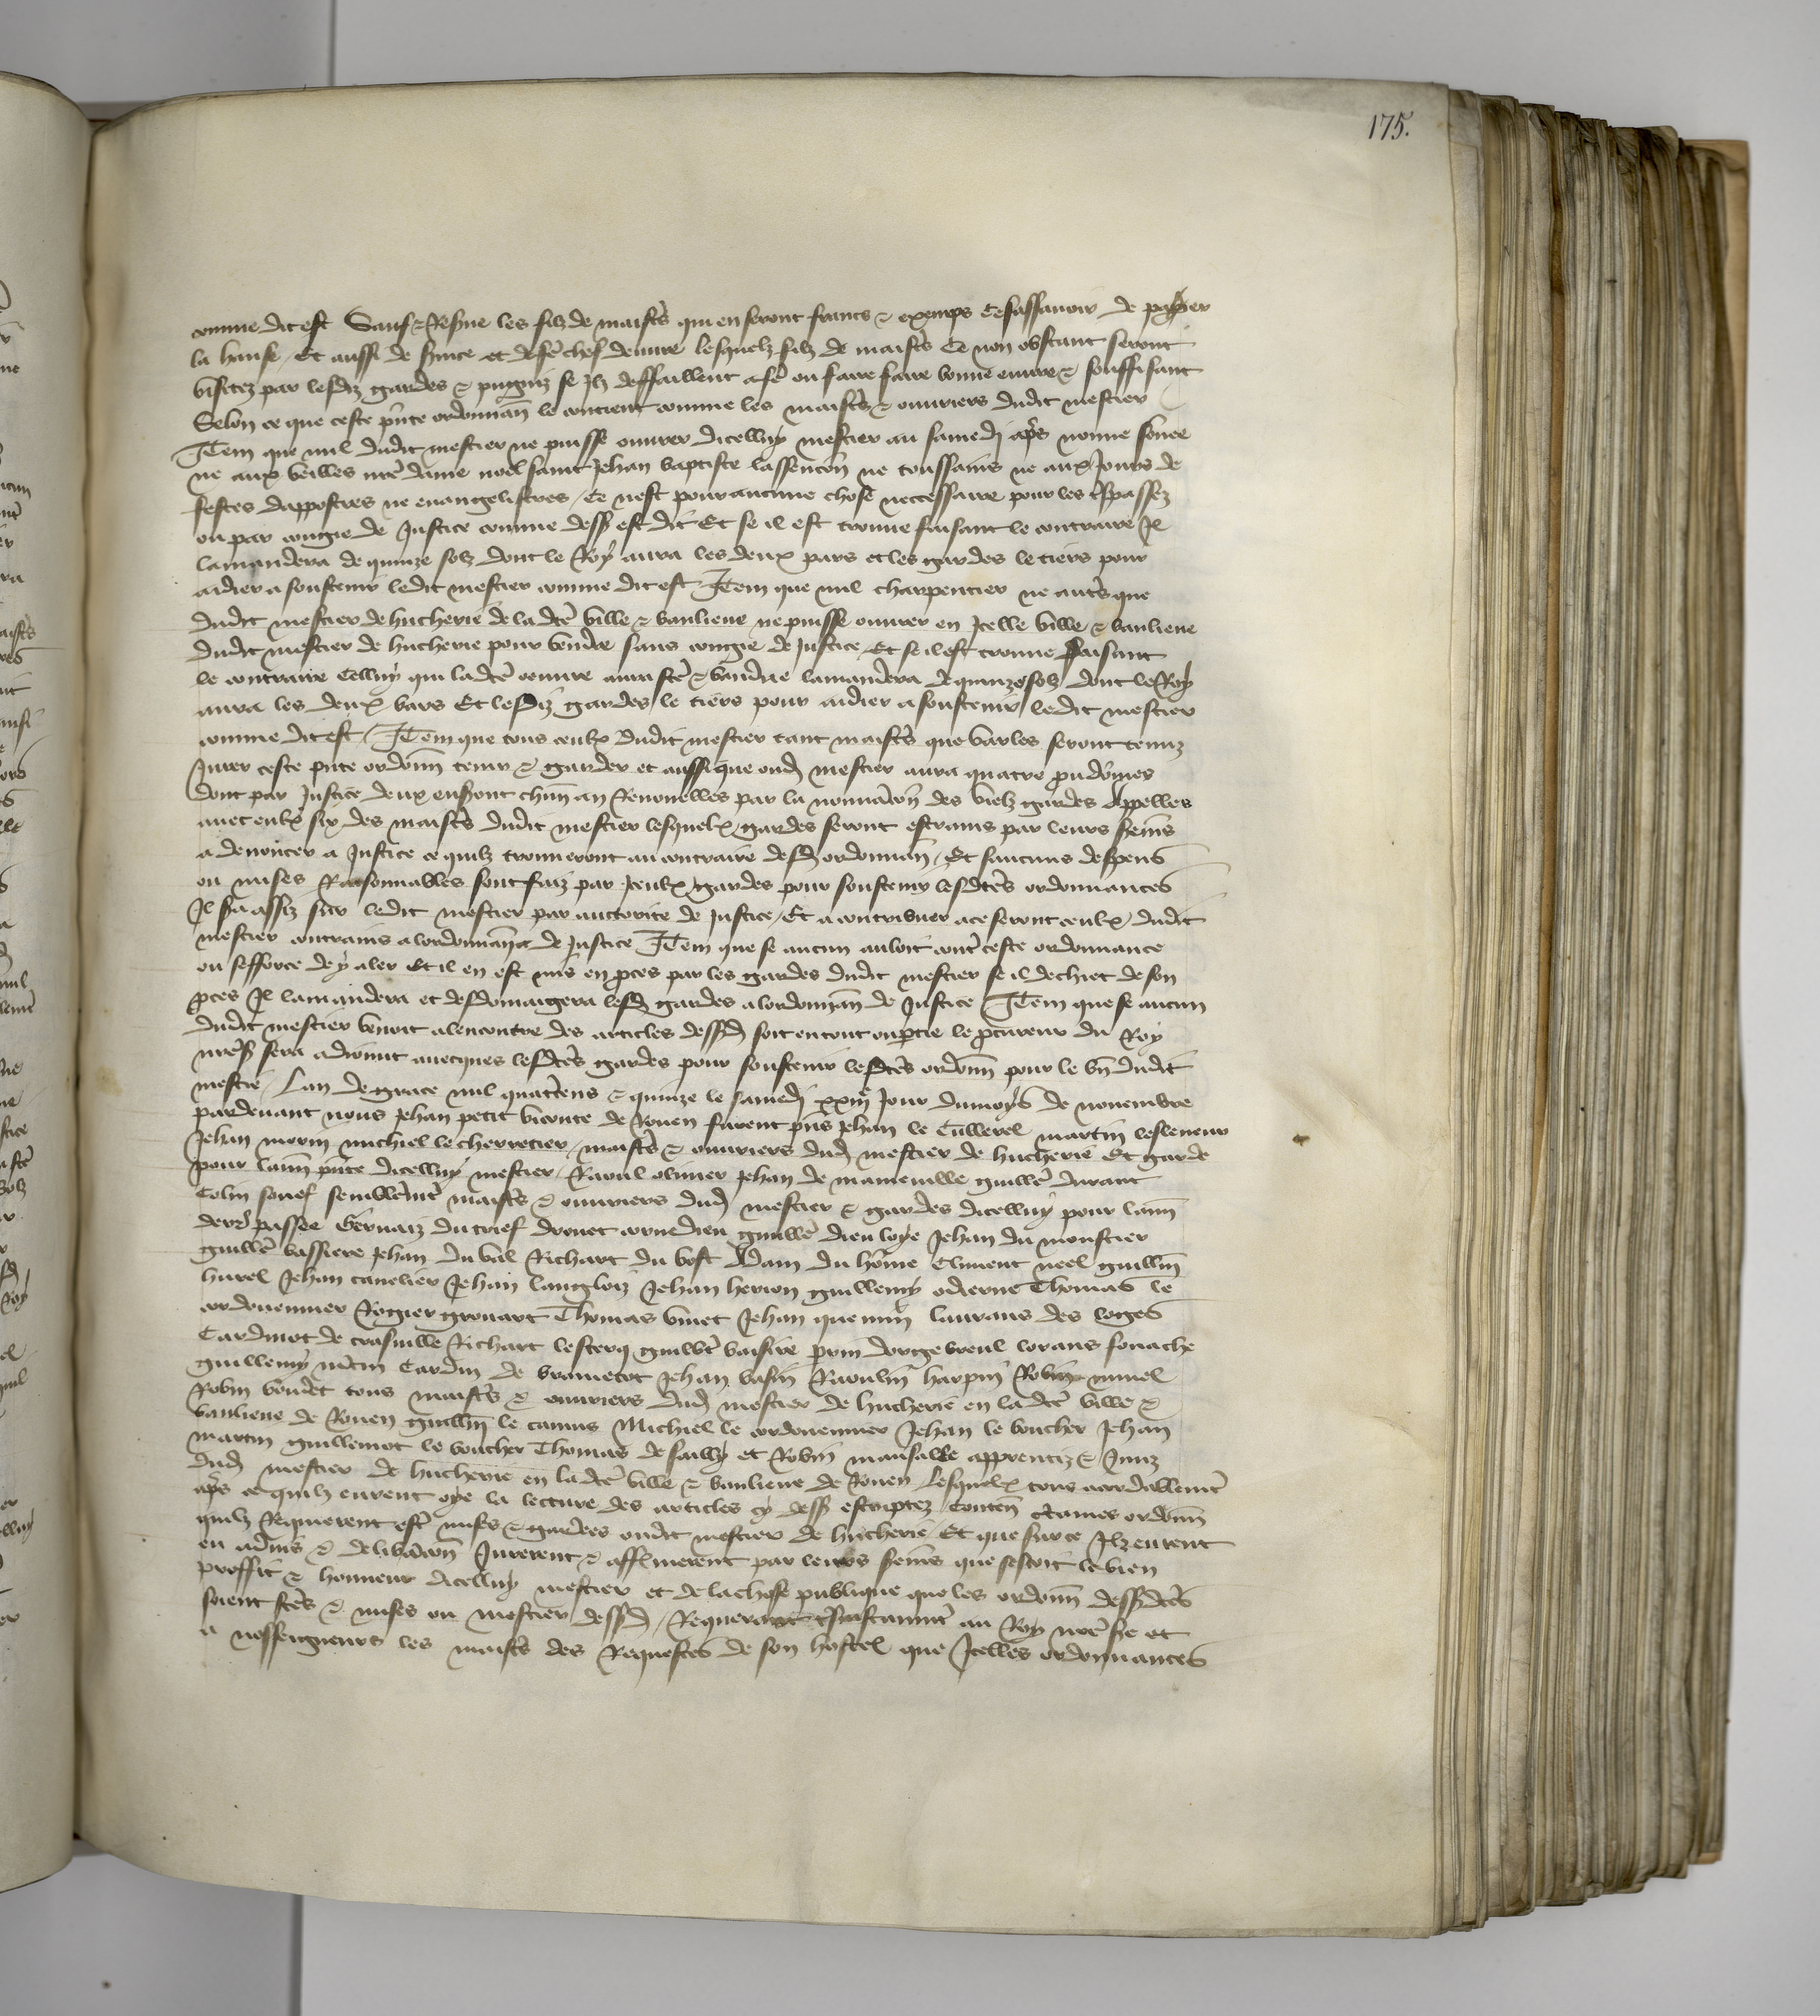 175.
comme dit est Sauf & Reserve les filz de maistres qui en seront francs & exemps Cest assavoir de paier
la hanse Et aussi de service et de ce chef deuvre lesquelz filz de maistres Ce non obstant seront
visitez par lesdiz gardes & pugniz se Ilz deffaillent a fere ou faire faire bonne euvre & souffisant
Selon ce que ceste pnte ordonnan le contient comme les maistres & ouvriers dudit mestier
Item que nul dudit mestier ne puisse ouvrer dicelluy mestier au samedj aps nonne sonee
ne aux veilles nre dame noel saint Jehan baptiste lassencion ne toussains ne aux Jours de
festes dappostres ne euangelistres Ce nest pour aucune chose neccessaire pour les tspassez
ou par congie de Justice comme dess est dit Et se il est trouve faisant le contraire Il
lamandera de quinze solz dont le Roy aura les deux pars et les gardes le tiers pour
aidier a soustenir ledit mestier comme dit est Item que nul charpentier ne autre que
dudit mestier de hucherie de ladte ville & banlieue ne puisse ouvrer en Icelle ville & banlieue
dudit mestier de hucherie pour vendre sans congie de Justice Et se il est trouve faisant
le contraire Celluy qui ladte oeuvre aura fete & vendue lamandera de quinze solz dont le Roy
aura les deux pars Et lesdiz gardes le tiers pour aidier a soustenir ledit mestier
comme dit est Item que tous ceulx dudit mestier tant maistres que varles seront tenuz
Jurer ceste pnte ordonn tenir & garder et aussi que oud mestier aura quatre preudomes
dont par Justice deux en seront chun an Renouvelles par la nominacion des vielz gardes Appelles
avec eulx six des maistres dudit mestier lesquelx gardes seront estrains par leurs sermens
a denoncer a Justice ce quilz trouveront au contraire desd ordonnan Et saucuns despens
ou mises Raisonnables sont faiz par Iceulx gardes pour soustenir lesdtes ordonnances
Il sera assiz sur ledit mestier par auctorite de Justice Et a contribuer a ce seront ceulx dudit
mestier contrains a lordonnance de Justice Item que se aucun aloit contre ceste ordonnance
ou sefforce de y aler Et il en est mis en proces par les gardes dudit mestier se il dechiet de son
proces Il lamandera et desdomaigera lesd gardes a lordonnan de Justice Item que se aucun
dudit mestier venoit alencontre des articles dessusd soit en tout ou partie le procureur du Roy
nre s sera adioint avecques lesdtes gardes pour soustenir lesdtes ordonn pour le bn dudit
mestier Lan de grace mil quatre cens & quinze le samedj xxiije Jour du moys de novembre
pardevant nous Jehan petit viconte de Rouen furent pns Jehan le Cuillerel martin lesleneur
Jehan morin michiel le cherretier maistres & ouvriers dud mestier de hucherie Et garde
pour lann pnte dicelluy mestier Raoul olivier Jehan de manneville guille durant
Colin souef semblement maistres & ouvriers dud mestier & gardes dicelluy pour lann
derre passee Gervaiz du trief drouet cornedieu guille dieuloye Jehan du moustier
guille vassiere Jehan du val Richart du bost Adam du home Climent neel guillin
hurel Jehan canelier Jehan langloiz Jehan heron guillemin odierne Thomas le
cordouennier Rogier grouart Thomas binet Jehan quemin laurans des loges
Cardinot de crasville Richart lesterq guille vaisire perrin dorgebreul lorans fouache
guillemin mtin Cardin de brametot Jehan basin Raoulin harpin Robin minel
Robin boudet tous maistres & ouvriers dud mestier de hucherie en ladte ville &
banlieue de Rouen guillin le camus Michiel le cordouennier Jehan le boucher Jehan
martin guillemot le boucher Thomas de sailly et Robin mansalle apprentiz & Jurez
dud mestier de hucherie en ladte ville & banlieue de Rouen Lesquelx tous acordablement
aps ce quilz eurent oye la lecture des articles cy dess escriptez Conten ctaines ordonn
quilz Requierent estre mises & gardees oudit mestier de hucherie Et que sur ce Ilz eurent
eu advis & deliberacion Jurerent & affermerent par leurs sermens que ce seroit le bien
proffit & honneur dicelluy mestier et de la chose publique que les ordonn dessusdtes
soient fctes & mises ou mestier dessusd Requerant tsinstamment au Roy nre sre et
a nosseigneurs les maistres des Requestes de son hostel que Icelles ordonnances